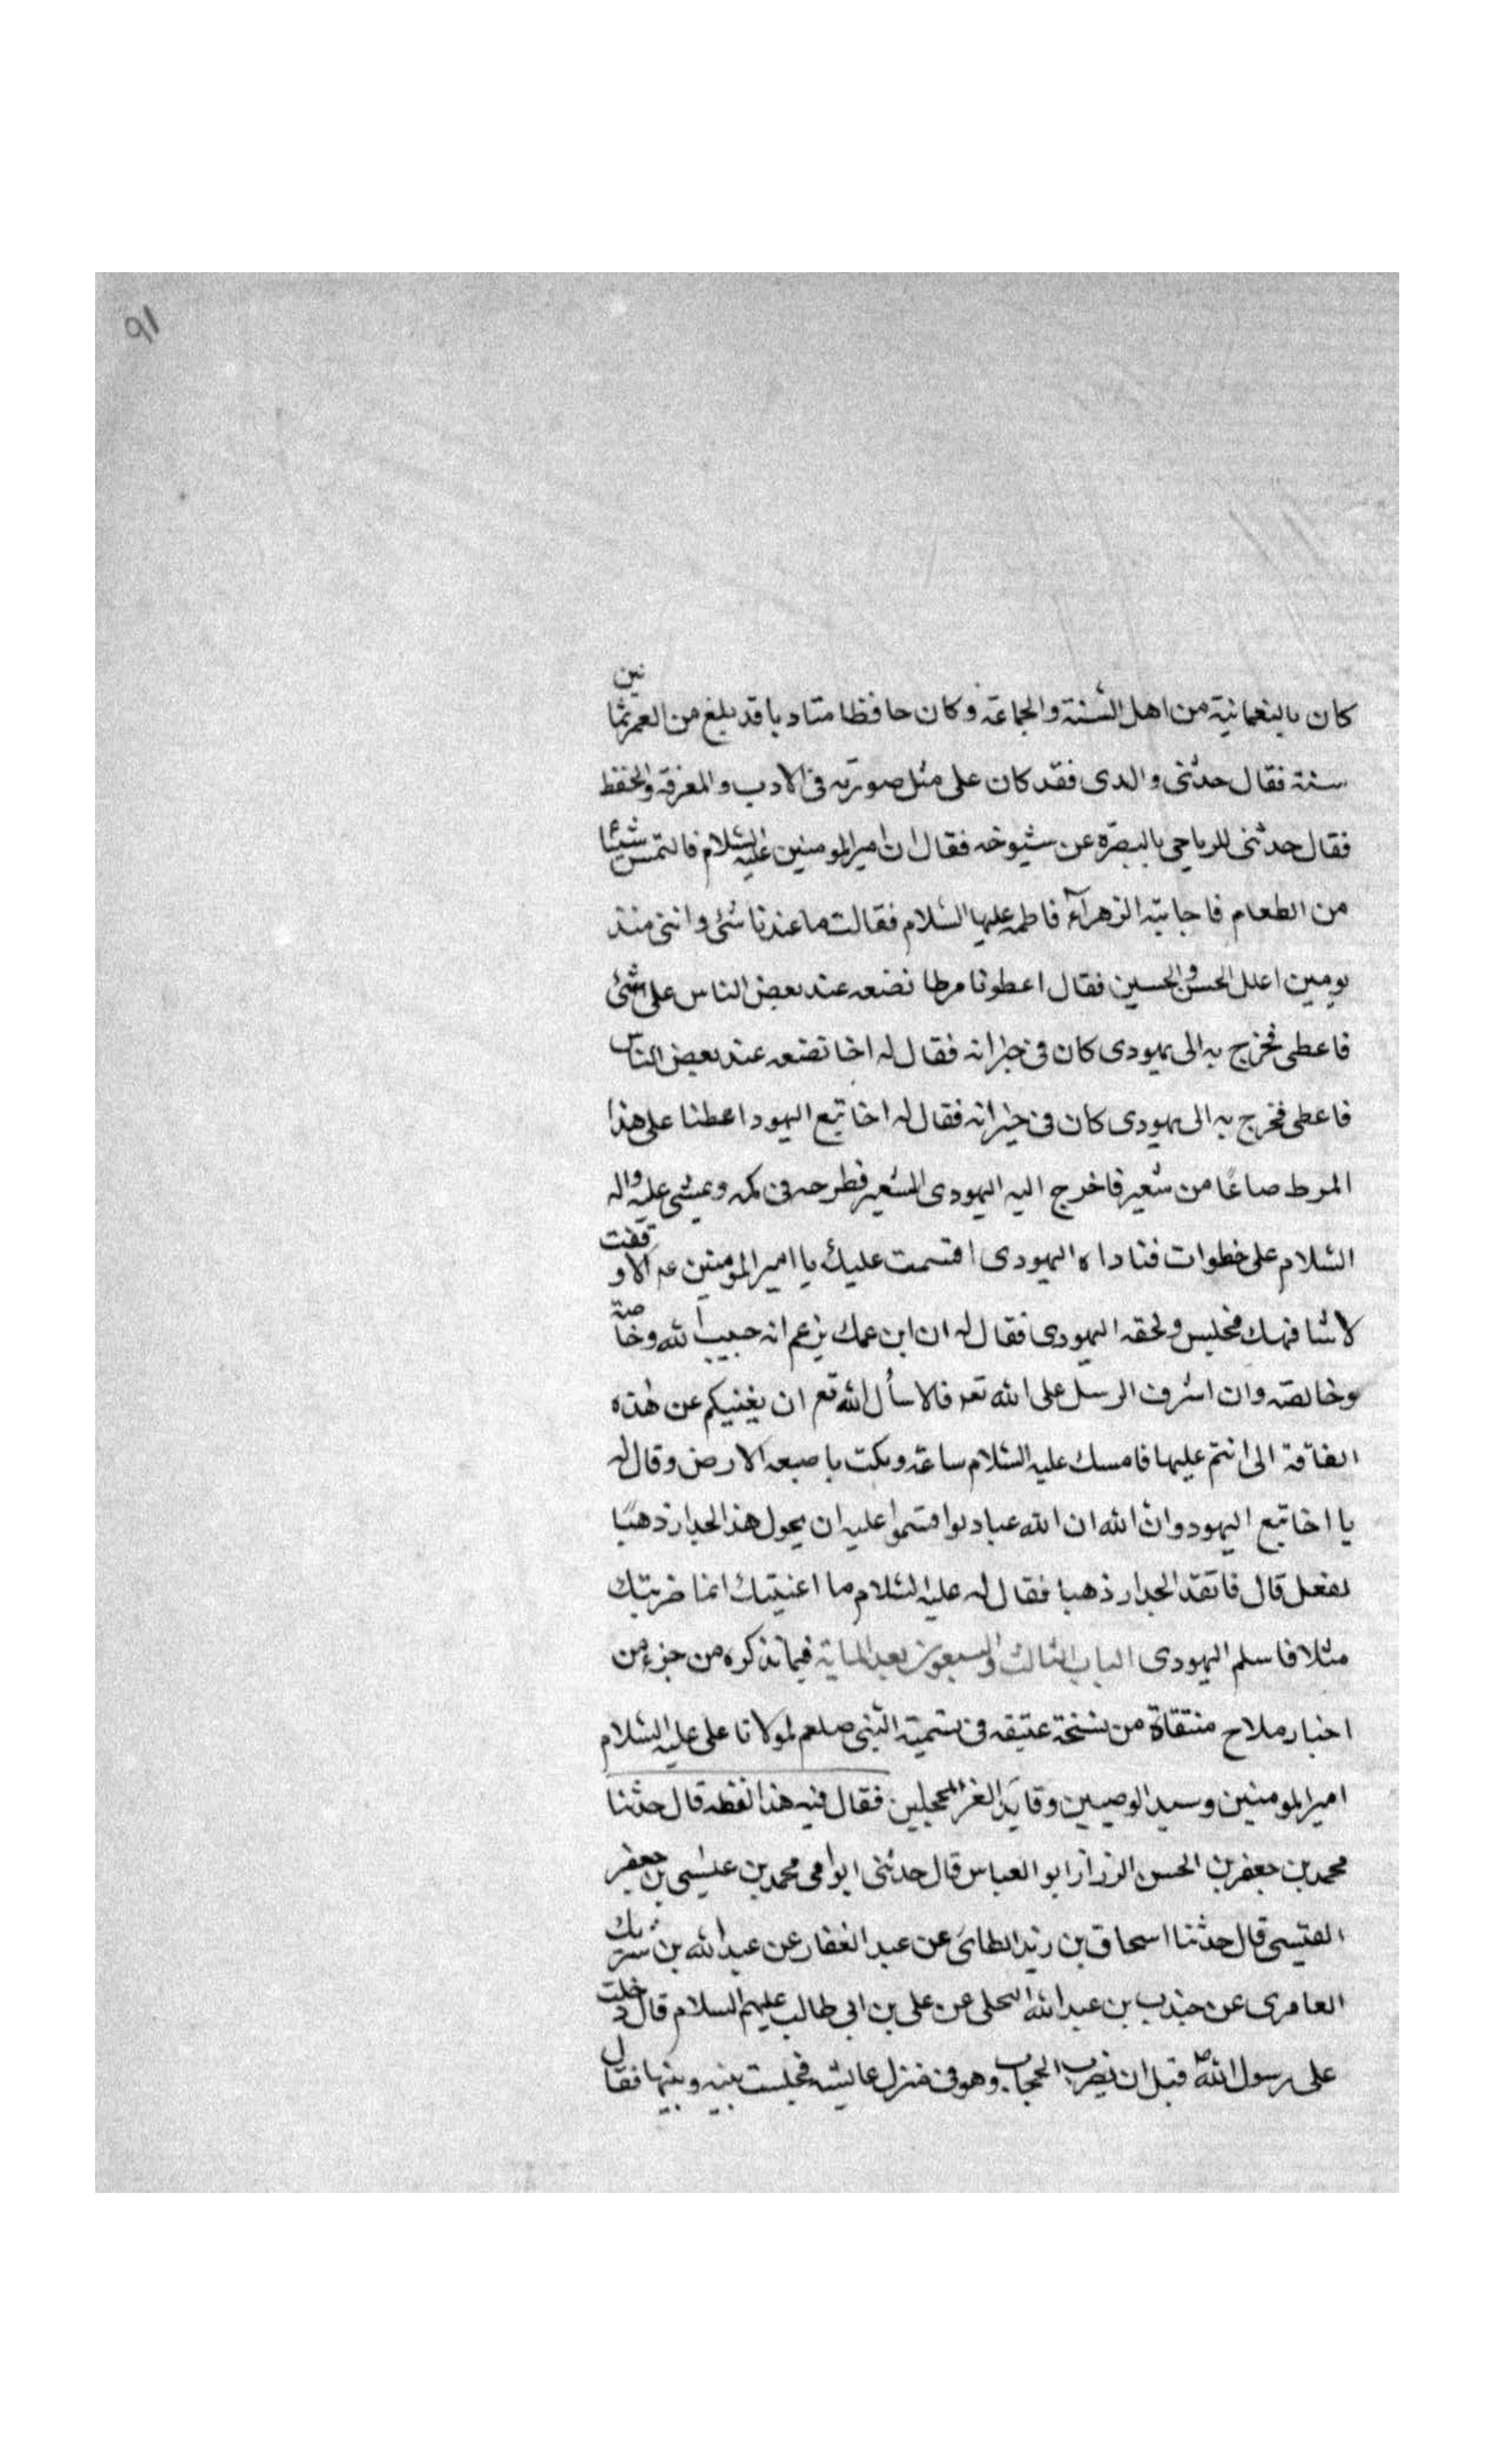 ٩١
كان بالنعمانية من اهل السنة والجماعة وكان حافظا متادبا قد بلغ من العمر ثمانين
سنة فقال حدثنى والدى فقد كان على مثل صورته فى الادب والمعرفة والحفظ
فقال حدثنى للرياحى بالبصرة عن شيوخه فقال ان امير المومنين عليه السلام فالتمس شيئا
من الطعام فاجابته الزهراء فاطمه عليها السلام فقالت ما عندنا شئ واننى منذ
يومين اعلل الحسن والحسين فقال اعطونا مرطا نضعه عند بعض الناس على شئ
فاعطى فخرج به الى يهودى كان فى جيرانه فقال له اخا تضعه عند بعض الناس
فاعطى فخرج به الى يهودى كان فى جيرانه فقال له اخا تبع اليهود اعطنا على هذا
المرط صاعًا من شعير فاخرج اليه اليهودى الشعير فطرحه فى كمه ومشى عليه واله
السلام على خطوات فناداه اليهودى اقسمت عليك يا امير المومنين عم الا وقفت
لاشافهك فجلس ولحقه اليهودى فقال له ان ابن عمك يزعم انه حبيب الله وخاصة
وخالصته وان اشرف الرسل على الله تعر فالا سأل الله تع ان يغنيكم عن هذه
الفاقة الى انتم عليها فامسك عليه السلام ساعة ونكت باصبعه الارض وقال له
يا اخا تبع اليهود وان الله ان الله عباد لو اقسموا عليه ان يحول هذا الجدار ذهبًا
لفعل قال فاتقد الجدار ذهبا فقال له عليه السلام ما اعنيتك انما ضربتك
مثلا فاسلم اليهودى الباب الثالث والسبعون بعد الماية فيما نذكره من جزء من
اخبار ملاح منتقاة من نسخة عتيقه فى تسمية النبى صلعم لمولانا على عليه السلام
امير المومنين وسيد الوصيين وقايد الغر المحجلين فقال فيه هذا لفظه قال حدثنا
محمد بن جعفر بن الحسن الرزاز ابو العباس قال حدثنى ابو امى محمد بن عيسى بن جعفر
القيسى قال حدثنا اسحاق بن زيد الطاى عن عبد الغفار عن عبد الله بن شريك
العامرى عن جندب بن عبد الله البجلى عن على بن ابى طالب عليهم السلام قال دخلت
على رسول الله ص قبل ان يضرب الحجاب وهو فى منزل عايشه فجلست بينه وبينها فقال